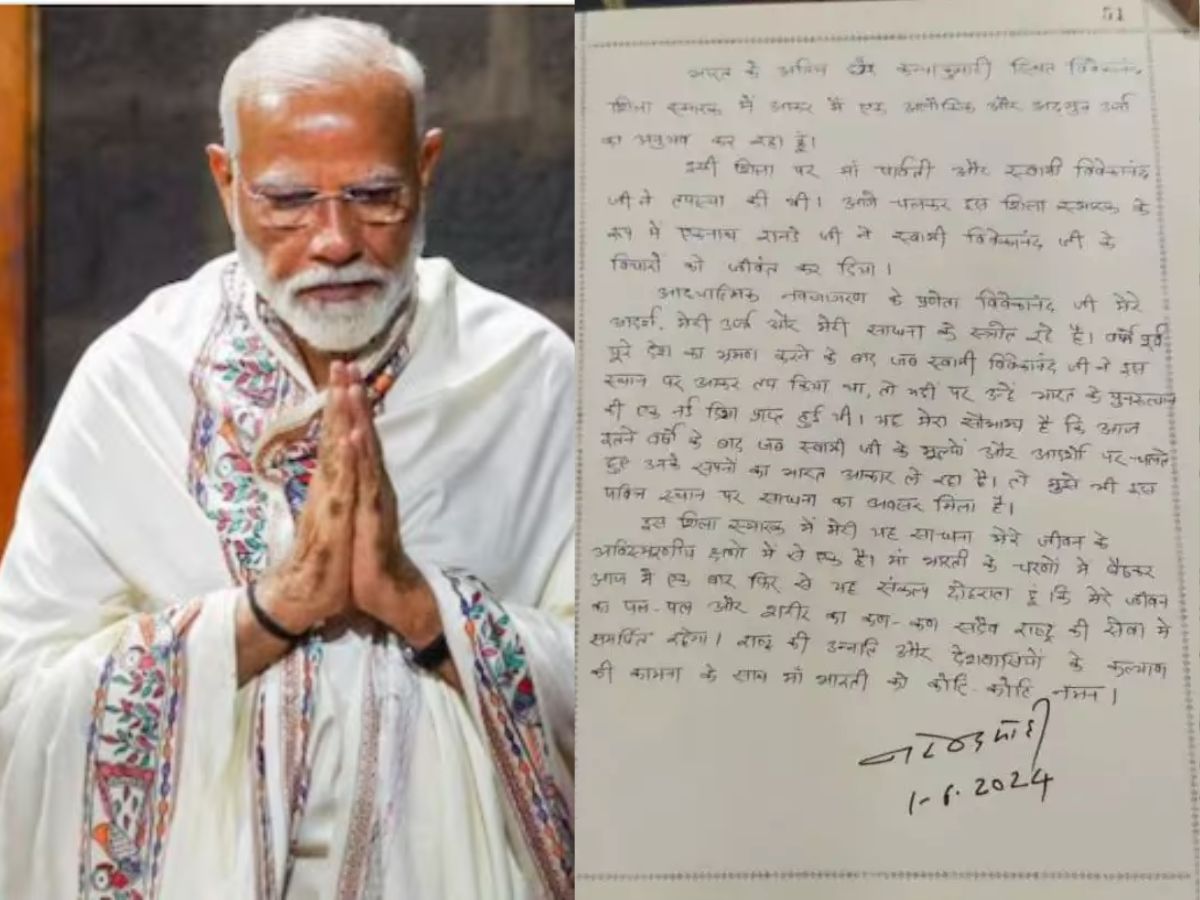 51
भारत के अंतिम छोर कन्याकुमारी स्थित विवेकानंद
शिला स्मारक में आकर मैं एक अलौकिक और अद्भुत उर्जा
का अनुभव कर रहा हूं।
इसी शिला पर मां पार्वती और स्वामी विवेकानंद
जी ने तपस्या की थी। आगे चलकर इस शिला स्मारक के
रूप में एकनाथ रानडे जी ने स्वामी विवेकानंद जी के
विचारों को जीवंत कर दिया।
आध्यात्मिक नवजागरण के प्रणेता विवेकानंद जी मेरे
आदर्श, मेरी उर्जा और मेरी साधना के स्त्रोत रहे है। वर्षों पूर्व
पूरे देश का भ्रमण करने के बाद जब स्वामी विवेकानंद जी ने इस
स्थान पर आकर तप किया था, तो यहीं पर उन्हें भारत के पुनरुत्थान
की एक नई दिशा प्राप्त हुई थी। यह मेरा सौभाग्य है कि आज
इतने वर्षों के बाद जब स्वामी जी के मूल्यों और आदर्शों पर चलते
हुए उनके सपनों का भारत आकार ले रहा है। तो मुझे भी इस
पवित्र स्थान पर साधना का अवसर मिला है।
इस शिला स्मारक में मेरी यह साधना मेरे जीवन के
अविस्मरणीय क्षणों में से एक है। मां भारती के चरणों में बैठकर
आज मैं एक बार फिर से यह संकल्प दोहराता हूं कि मेरे जीवन
का पल-पल और शरीर का कण-कण सदैव राष्ट्र की सेवा मे
समर्पित रहेगा। राष्ट्र की उन्नति और देशवासियों के कल्याण
की कामना के साथ मां भारती को कोटि-कोटि नमन।
नरेन्द्र मोदी
1-6.2024